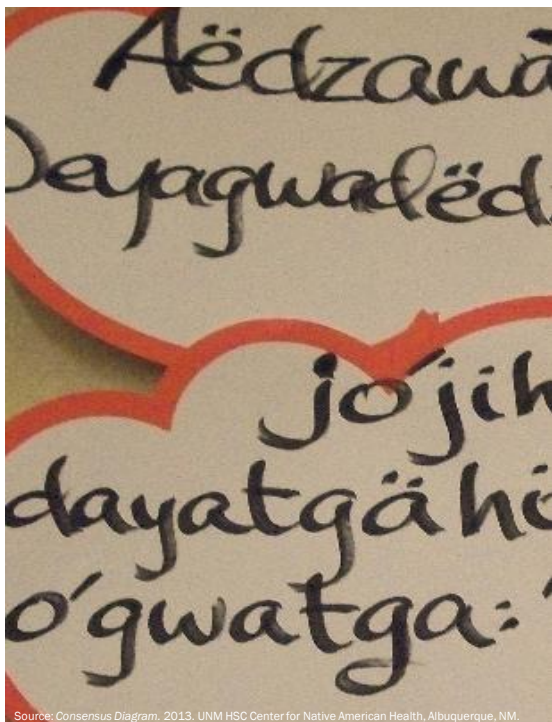 Aëdzanä
Deyagwadëd
jo'jih
dayatgä hö
o'gwatga:'
Source: Consensus Diagram. 2013. UNM HSC Center for Native American Health, Albuquerque, NM.